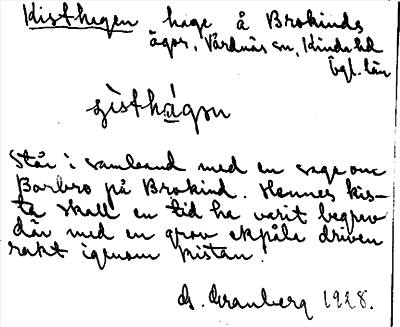 Kisthagen hage å Brokinds
ägor, Vårdnäs sn, Kinda hd
Ögl. län
Står i samband med en sage om
Barbro på Brokind. Hennes kis-
ta skall en tid ha varit begrav
där med en grov ekpåle driven
rakt igenom kistan.
G. Granberg 1928.